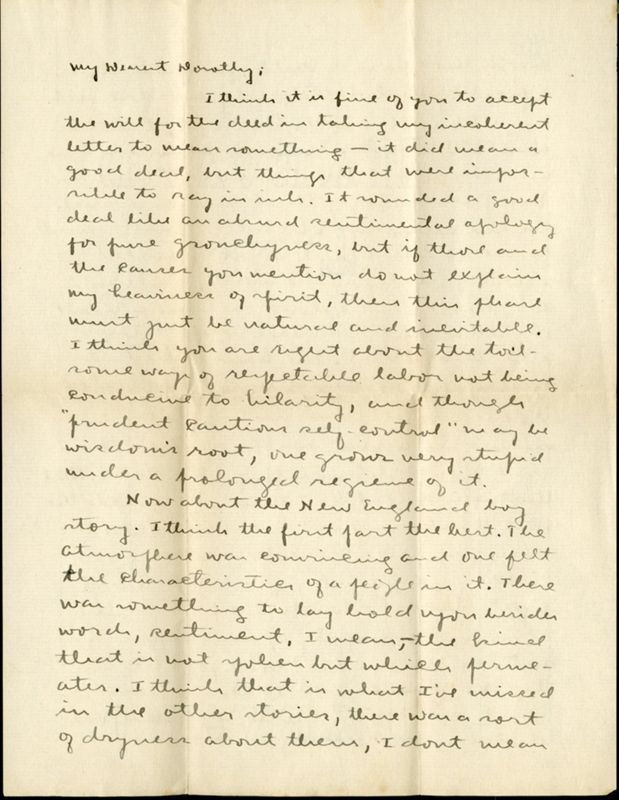 My Dearest Dorothy;
I think it is fine of you to accept
the will for the deed in taking my incoherent
letter to mean something — it did mean a
good deal, but things that were impos-
sible to say in ink. It sounded a good
deal like an absurd sentimental apology
for pure grouchyness, but if those and
the causes you mention do not explain
my heaviness of spirit, then this phase
must just be natural and inevitable.
I think you are right about the toil-
some ways of respectable labor not being
conducive to hilarity, and though
"prudent cautious self-control" may be
wisdom's root, one grows very stupid
under a prolonged regieme of it.
Now about the New England boy
story. I think the first part the best. The
atmosphere was convincing and one felt
the characteristics of a people in it. There
was something to lay hold upon besides
words, sentiment, I mean, — the kind
that is not spoken but which perme-
ates. I think that is what I've missed
in the other stories, there was a sort
of dryness about them, I dont mean